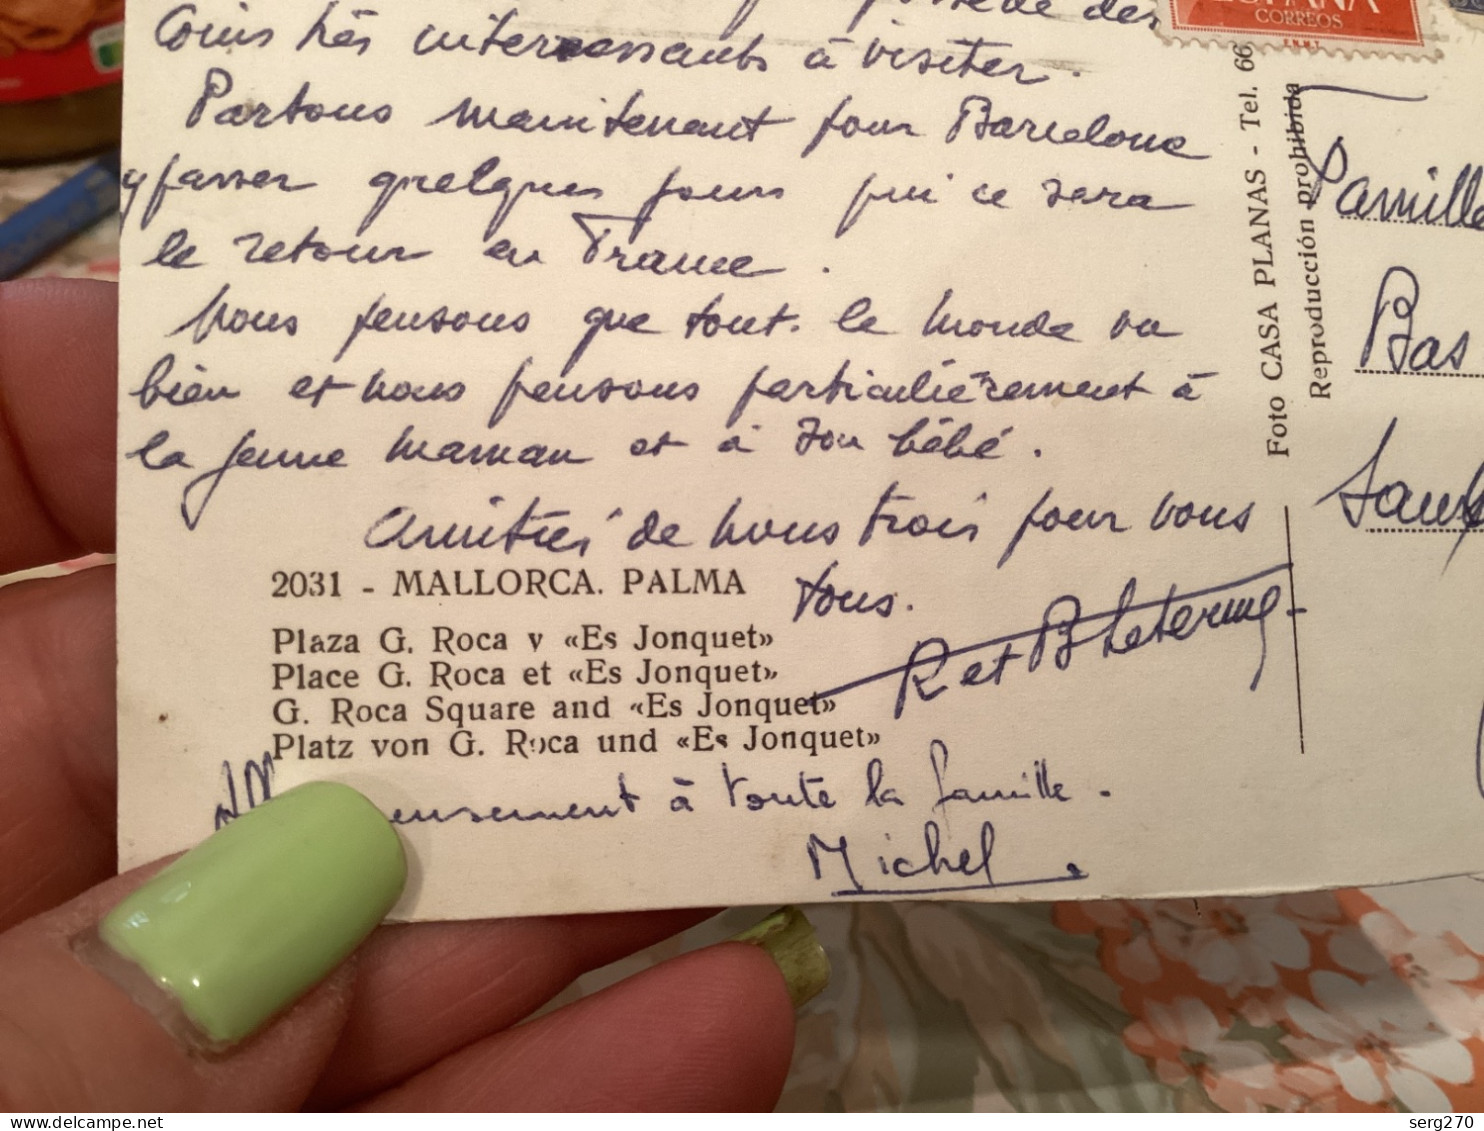 possède des
coins très intéressants à visiter.
Partons maintenant pour Barcelone
y passer quelques jours puis ce sera
le retour en France.
Nous pensons que tout le monde va
bien et nous pensons particulièrement à
la jeune maman et à son bébé.
Amitiés de nous trois pour vous
tous.
R et B
2031 - MALLORCA. PALMA
Plaza G. Roca y «Es Jonquet»
Place G. Roca et «Es Jonquet»
G. Roca Square and «Es Jonquet»
Platz von G. Roca und «Es Jonquet»
à toute la famille.
Michel
Foto CASA PLANAS - Tel. 66
Reproducción prohibida
ESPAÑA
CORREOS
F.N.M.T.
Famille
Bas
serg270